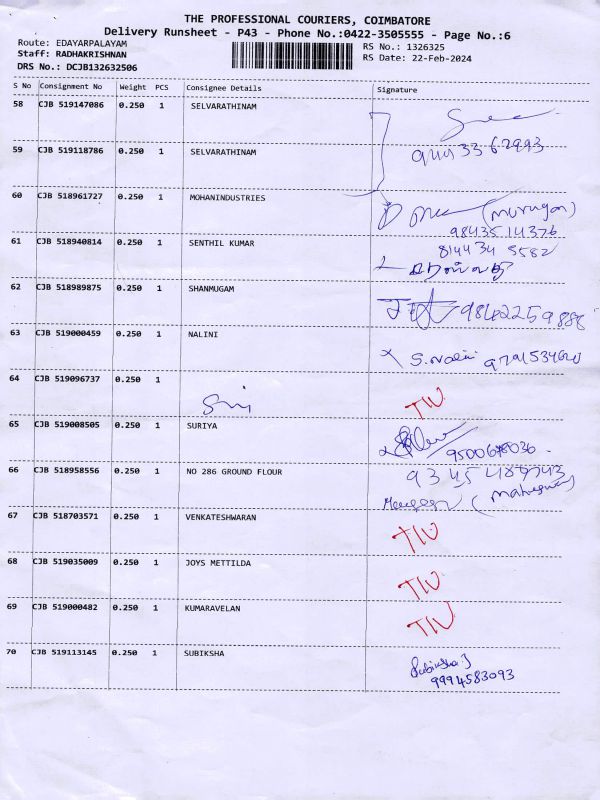 THE PROFESSIONAL COURIERS, COIMBATORE
Delivery Runsheet - P43 - Phone No.:0422-3505555 - Page No.:6
Route: EDAYARPALAYAM
RS No.: 1326325
Staff: RADHAKRISHNAN
RS Date: 22-Feb-2024
DRS No.: DCJB132632506
S No Consignment No Weight PCS Consignee Details Signature
58 CJB 519147086 0.250 1 SELVARATHINAM
59 CJB 519118786 0.250 1 SELVARATHINAM
60 CJB 518961727 0.250 1 MOHANINDUSTRIES (Murugan)
9843514376
61 CJB 518940814 0.250 1 SENTHIL KUMAR 814434 5582
62 CJB 518989875 0.250 1 SHANMUGAM 9842259886
63 CJB 519000459 0.250 1 NALINI S. Nalini
64 CJB 519096737 0.250 1
65 CJB 519008505 0.250 1 SURIYA
66 CJB 518958556 0.250 1 NO 286 GROUND FLOUR
67 CJB 518703571 0.250 1 VENKATESHWARAN
68 CJB 519035009 0.250 1 JOYS METTILDA
69 CJB 519000482 0.250 1 KUMARAVELAN
70 CJB 519113145 0.250 1 SUBIKSHA Subiksha J
9994583093